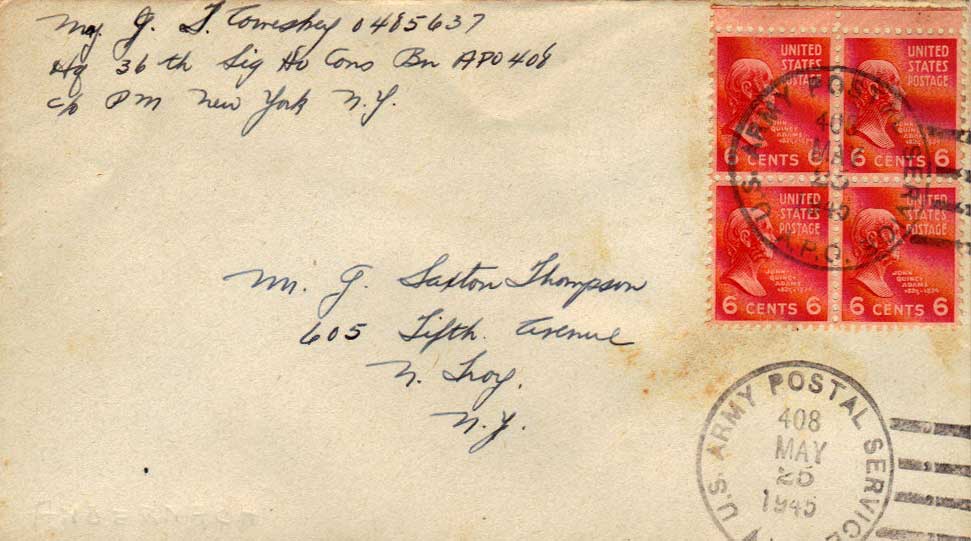 Maj. J. S. 0485637
Hq 36th Sig Hv Cons Bn APO 408
c/o PM New York N.Y.
Mr. J. Saxton Thompson
605 Fifth Avenue
N. Troy.
N.Y.
UNITED STATES POSTAGE
JOHN QUINCY ADAMS
6 CENTS 6
UNITED STATES POSTAGE
JOHN QUINCY ADAMS
6 CENTS 6
UNITED STATES POSTAGE
JOHN QUINCY ADAMS 1825-1829
6 CENTS 6
UNITED STATES POSTAGE
JOHN QUINCY ADAMS 1825-1829
6 CENTS 6
U.S. ARMY POSTAL SERVICE
A.P.O.
MAY
U.S. ARMY POSTAL SERVICE
408
MAY
25
1945